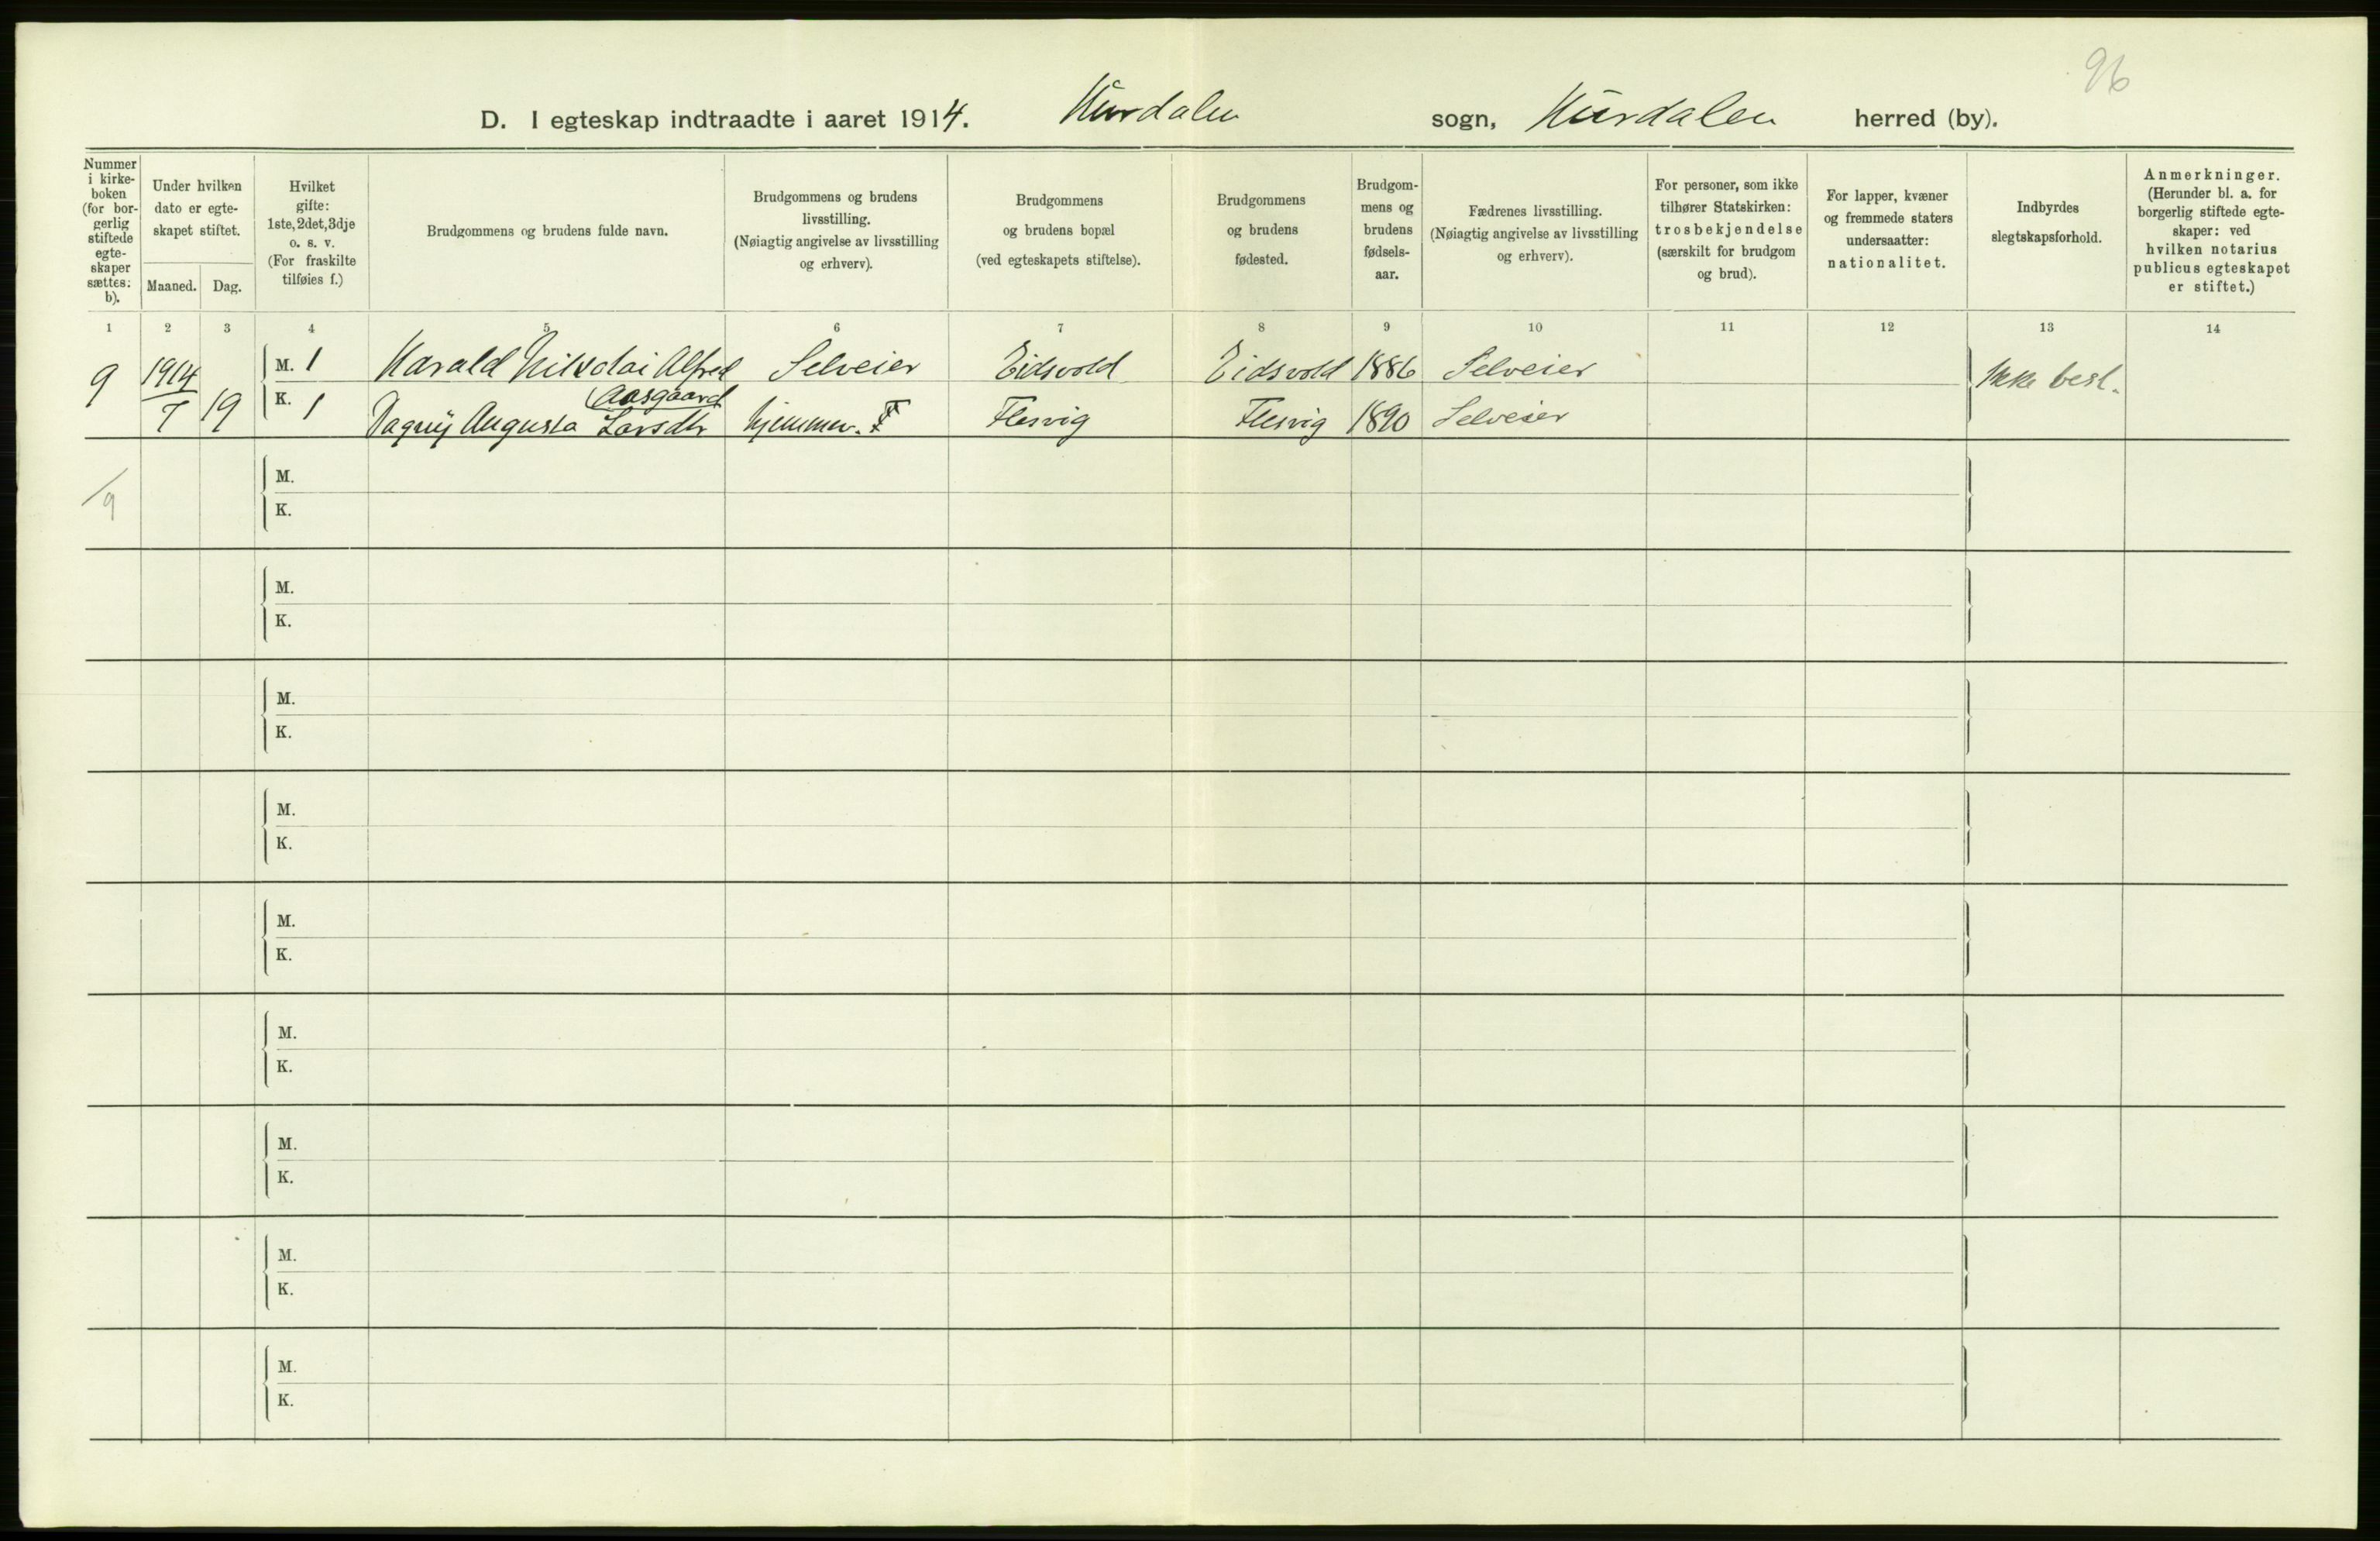 96
D. I egteskap indtraadte i aaret 1914. Hurdalen sogn, Hurdalen herred (by).
Nummer i kirke-boken (for bor-gerlig stiftede egte-skaper sættes: b).
Under hvilken dato er egte-skapet stiftet.
Maaned. Dag.
Hvilket gifte: 1ste, 2det, 3dje o. s. v. (For fraskilte tilføies f.)
Brudgommens og brudens fulde navn.
Brudgommens og brudens livsstilling. (Nøiagtig angivelse av livsstilling og erhverv).
Brudgommens og brudens bopæl (ved egteskapets stiftelse).
Brudgommens og brudens fødested.
Brudgom-mens og brudens fødsels-aar.
Fædrenes livsstilling. (Nøiagtig angivelse av livsstilling og erhverv).
For personer, som ikke tilhører Statskirken: trosbekjendelse (særskilt for brudgom og brud).
For lapper, kvæner og fremmede staters undersaatter: nationalitet.
Indbyrdes slegtskapsforhold.
Anmerkninger. (Herunder bl. a. for borgerlig stiftede egte-skaper: ved hvilken notarius publicus egteskapet er stiftet.)
1 2 3 4 5 6 7 8 9 10 11 12 13 14
9 1914 M. 1 Harald Nikolai Alfred Selveier Eidsvold Eidsvold 1886 Selveier Ikke besl.
Aasgaard
7 19 K. 1 Dagny Augusta Larsdtr hjemmev. Flesvig Flesvig 1890 Selveier
M.
9
K.
M.
K.
M.
K.
M.
K.
M.
K.
M.
K.
M.
K.
M.
K.
M.
K.